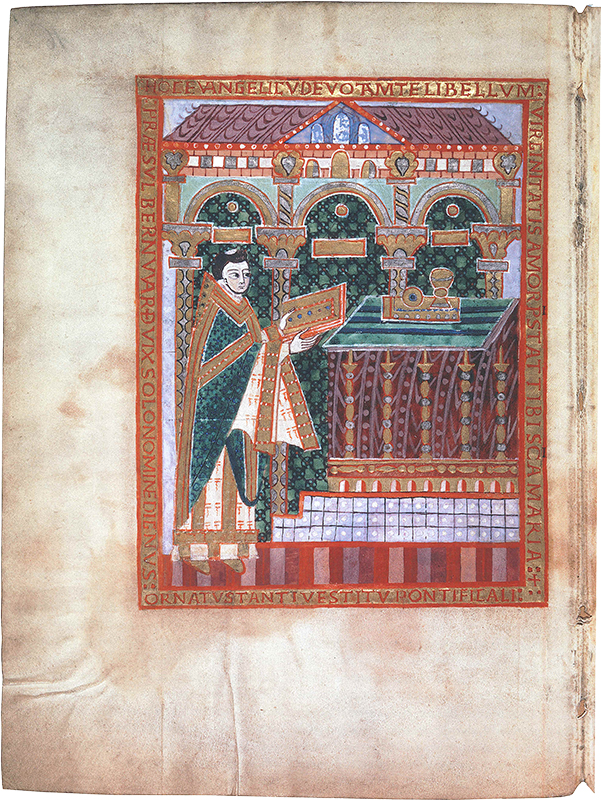 HOC EVANGELICV DEVOTA MTE LIBELLVM:
VIRGINITATIS AMOR PSTAT TIBI SCA MARIA:+
PRÆSVL BERNVVARD VIX SOLO NOMINE DIGNVS:
ORNATVS TANTI VESTITV PONTIFICALI: